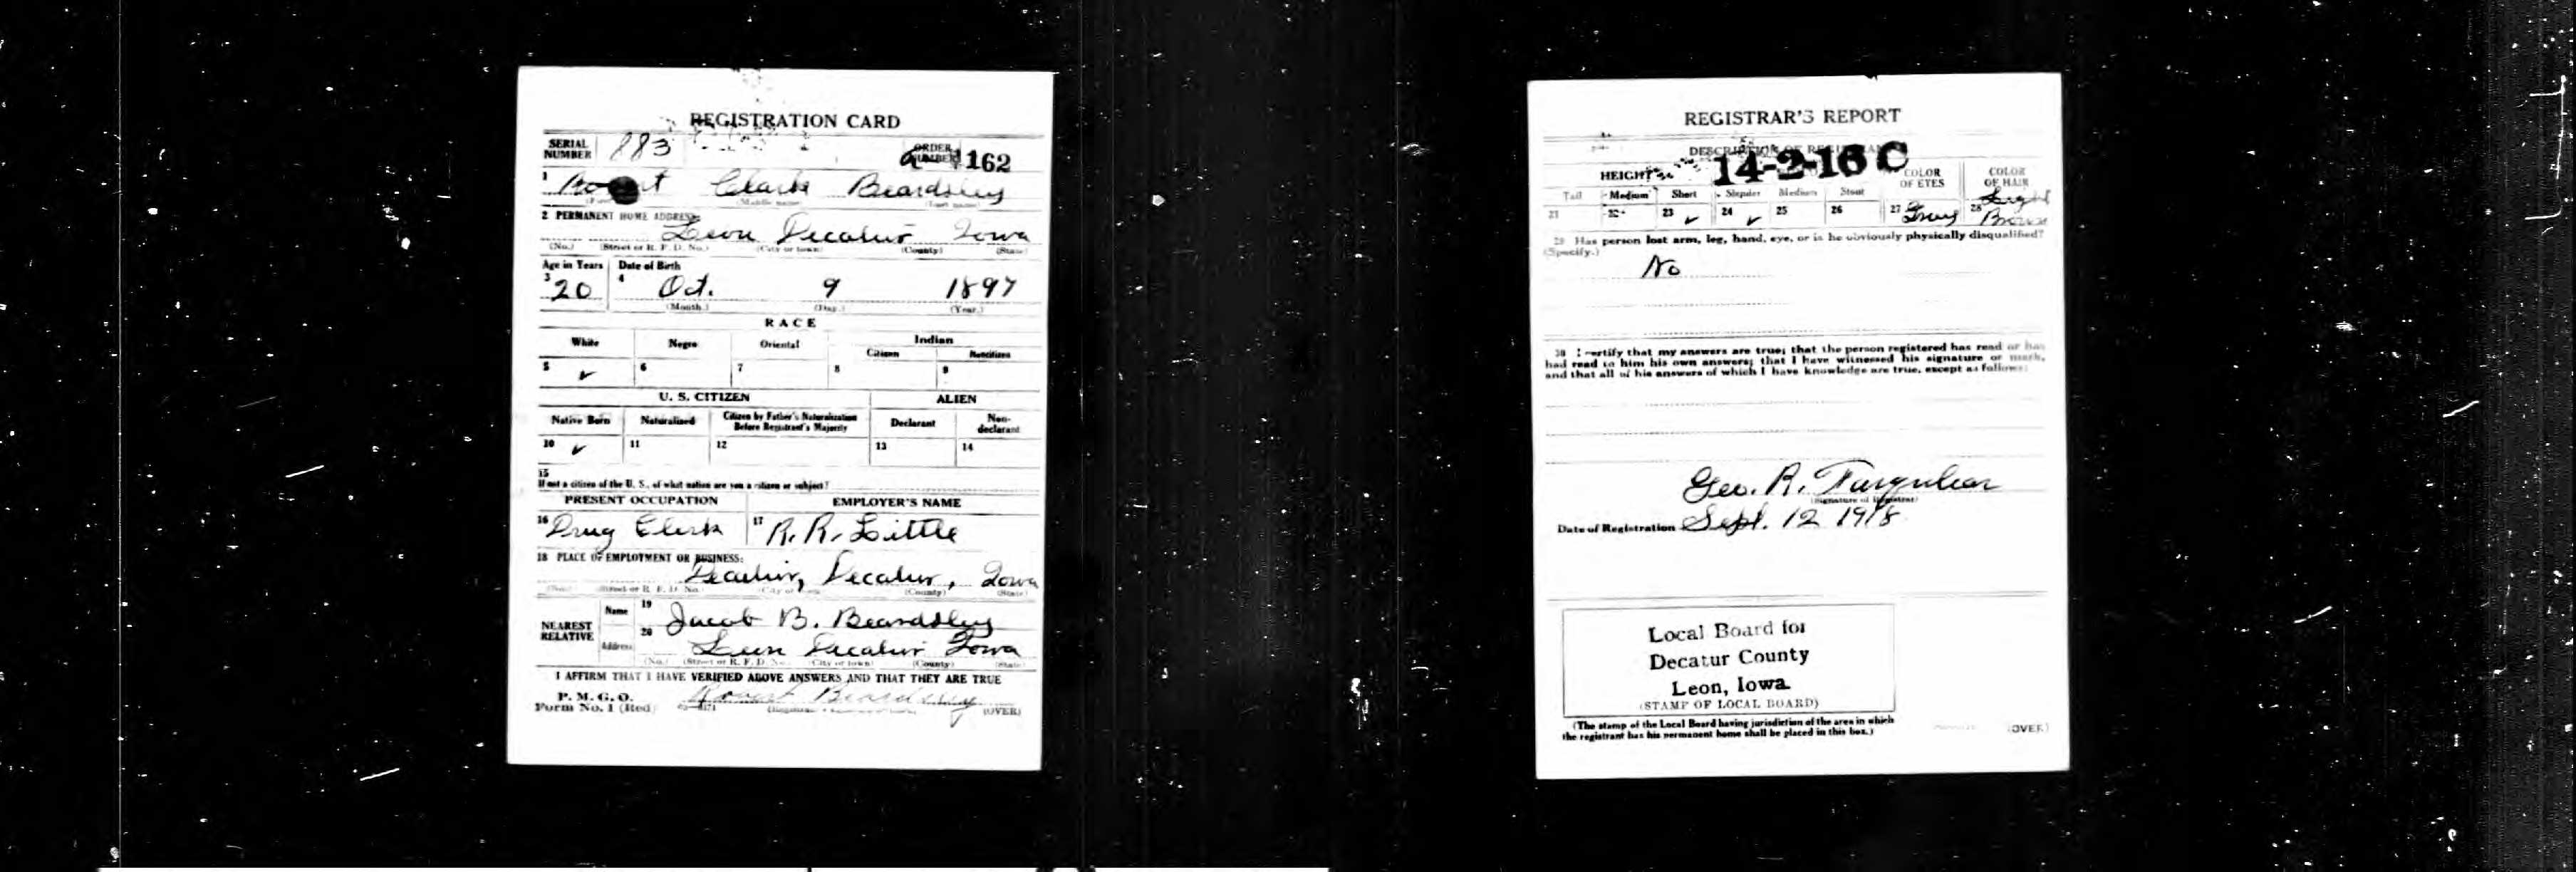 REGISTRATION CARD
SERIAL NUMBER 883 ORDER NUMBER 162
1 Clark Beardsley
(Middle name) (Last name)
2 PERMANENT HOME ADDRESS:
Leon Decatur Iowa
(No.) (Street or R. F. D. No.) (City or town) (County) (State)
Age in Years Date of Birth
3 20 4 Oct. 9 1897
(Month.) (Day.) (Year.)
RACE
White Negro Oriental Indian
Citizen Noncitizen
5 ✓ 6 7 8 9
U. S. CITIZEN ALIEN
Native Born Naturalized Citizen by Father's Naturalization Before Registrant's Majority Declarant Non-declarant
10 ✓ 11 12 13 14
15
If not a citizen of the U. S., of what nation are you a citizen or subject?
PRESENT OCCUPATION EMPLOYER'S NAME
16 Drug Clerk 17 R. R. Little
18 PLACE OF EMPLOYMENT OR BUSINESS:
Decatur, Decatur, Iowa
(No.) (Street or R. F. D. No.) (City or town) (County) (State)
NEAREST RELATIVE Name 19 Jacob B. Beardsley
Address 20 Leon Decatur Iowa
(No.) (Street or R. F. D. No.) (City or town) (County) (State)
I AFFIRM THAT I HAVE VERIFIED ABOVE ANSWERS AND THAT THEY ARE TRUE
P. M. G. O.
Form No. 1 (Red) Robert Beardsley (OVER)
REGISTRAR'S REPORT
14-2-16 C
DESCRIPTION OF REGISTRANT
HEIGHT COLOR OF EYES COLOR OF HAIR
Tall Medium Short Slender Medium Stout
21 22 23 ✓ 24 ✓ 25 26 27 Gray 28 Light Brown
29 Has person lost arm, leg, hand, eye, or is he obviously physically disqualified?
(Specify.)
No
30 I certify that my answers are true; that the person registered has read or has
had read to him his own answers; that I have witnessed his signature or mark,
and that all of his answers of which I have knowledge are true, except as follows:
Geo. R. Farquhar
(Signature of Registrar)
Date of Registration Sept. 12 1918
Local Board for
Decatur County
Leon, Iowa
(STAMP OF LOCAL BOARD)
(The stamp of the Local Board having jurisdiction of the area in which
the registrant has his permanent home shall be placed in this box.)
(OVER)